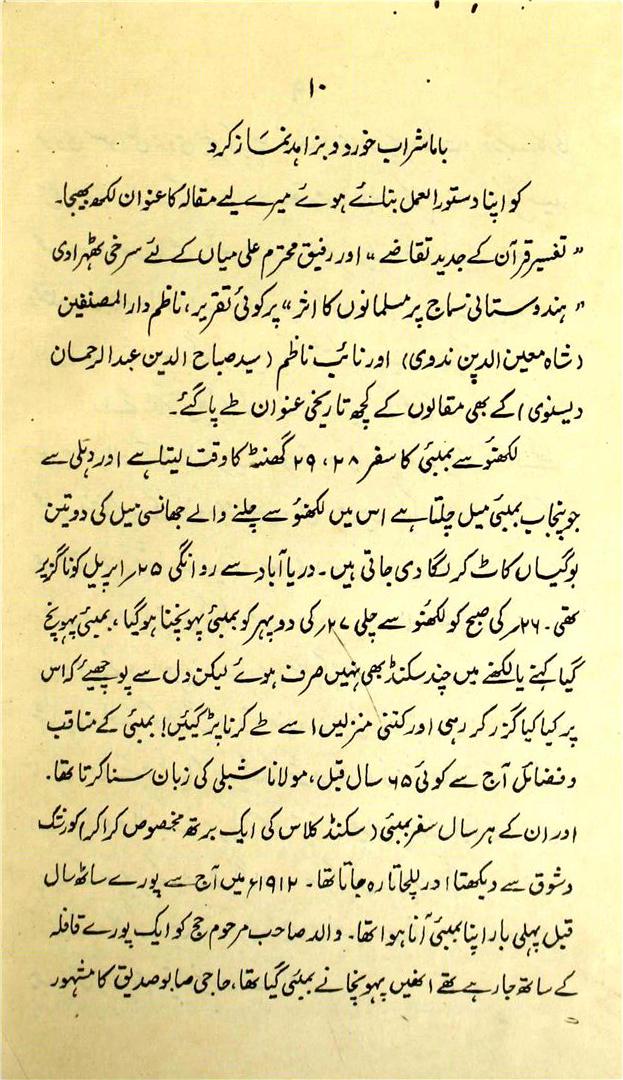 ۱۰
باما شراب خورد و بزاہد نماز کرد
کو اپنا دستورالعمل بتائے ہوئے میرے لیے مقالہ کا عنوان لکھ بھیجا۔
”تفسیر قرآن کے جدید تقاضے“ اور رفیق محترم علی میاں کے لئے سرخی ٹھہرا دی
”ہندوستانی سماج پر مسلمانوں کا اثر“ پر کوئی تقریر، ناظم دارالمصنفین
(شاہ معین الدین ندوی) اور نائب ناظم (سید صباح الدین عبدالرحمان
دیسنوی) کے بھی مقالوں کے کچھ تاریخی عنوان طے پا گئے۔
لکھنؤ سے بمبئی کا سفر ۲۸، ۲۹ گھنٹہ کا وقت لیتا ہے اور دہلی سے
جو پنجاب بمبئی میل چلتا ہے اس میں لکھنؤ سے چلنے والے جھانسی میل کی دو تین
بوگیاں کاٹ کر لگا دی جاتی ہیں۔ دریاآباد سے روانگی ۲۵؍ اپریل کو ناگزیر
تھی۔ ۲۶؍ کی صبح کو لکھنؤ سے چلی ۲۷؍ کی دوپہر کو بمبئی پہونچنا ہوگیا، بمبئی پہونچ
گیا کہنے یا لکھنے میں چند سکنڈ بھی نہیں صرف ہوئے لیکن دل سے پوچھیے کہ اس
پر کیا کیا گزر کر رہی اور کتنی منزلیں اسے طے کرنا پڑ گیئں! بمبئی کے مناقب
و فضائل آج سے کوئی ۶۵ سال قبل، مولانا شبلی کی زبان سنا کرتا تھا۔
اور ان کے ہر سال سفر بمبئی (سکنڈ کلاس کی ایک برتھ مخصوص کرا کر) کو رشک
و شوق سے دیکھتا اور للچاتا رہ جاتا تھا۔ ۱۹۱۲ء میں آج سے پورے ساٹھ سال
قبل پہلی بار اپنا بمبئی آنا ہوا تھا۔ والد صاحب مرحوم حج کو ایک پورے قافلہ
کے ساتھ جا رہے تھے انھیں پہونچانے بمبئی گیا تھا، حاجی صابو صدیق کا مشہور